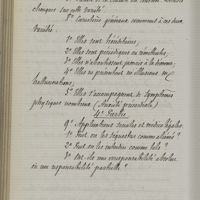 cliniques sur cette variété.
1° Caractères généraux communs à ces deux
variétés :
1° Elles sont héréditaires,
2° Elles sont périodiques ou rémittentes,
3° Elles n'aboutissent jamais à la démence,
4° Elles ne procèdent ni illusions ni
hallucinations,
5° Elles s'accompagnent de symptômes
physiques nombreux (
4e Partie
4° Applications sociales et médico-légales
1° Faut-on les séquestrer comme aliénés ?
2° Faut-on les interdire comme tels ?
3° Ont-ils une irresponsabilité absolue
ou une responsabilité partielle ?